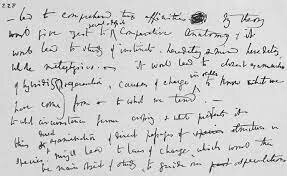 228
— led to comprehend true affinities. My theory
would give zest to recent & fossil Comparative Anatomy, & it
would lead to study of instincts, heredity & mind heredity,
whole metaphysics. — it would lead to closest examination
of hybridity & generation, causes of change in order to know what we
have come from & to what we tend. —
to what circumstances favour crossing & what prevents it —
this & direct examination of direct passages of structure in
species, might lead to laws of change, which would then
be main object of study, to guide our past speculations